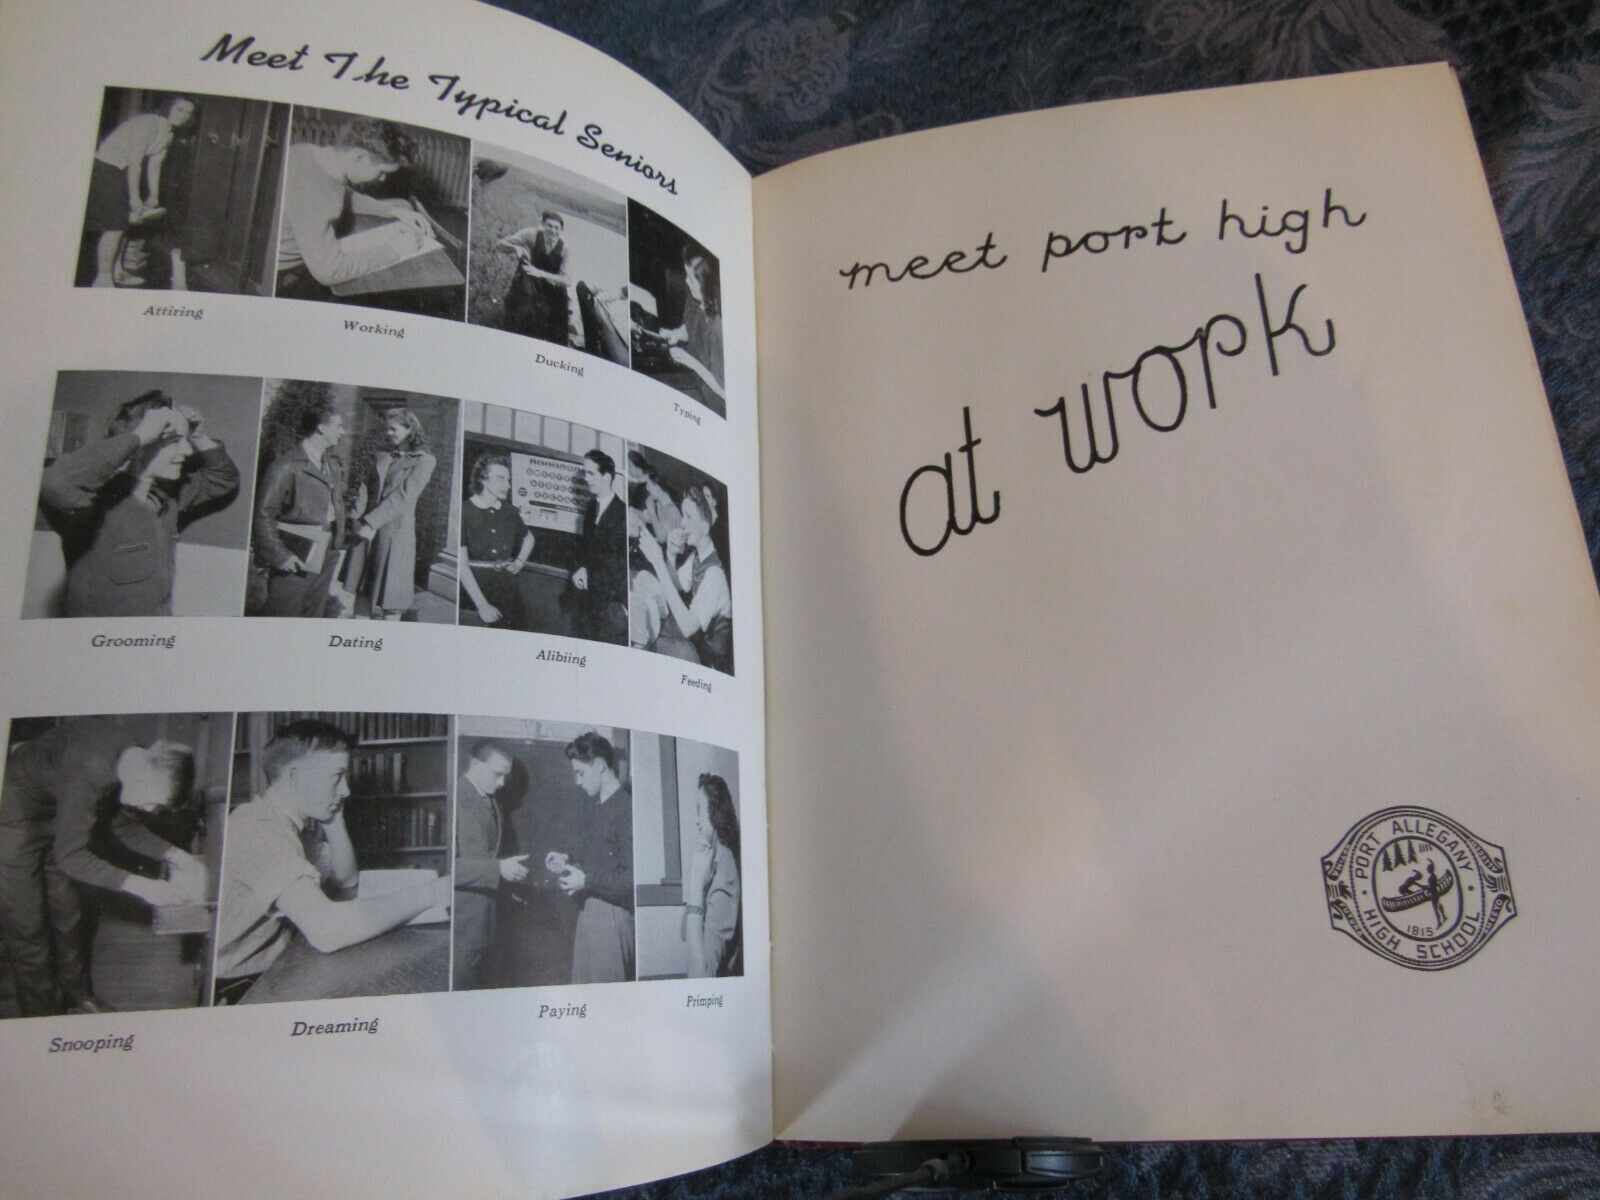 Meet The Typical Seniors
Attiring
Working
Ducking
Typing
Grooming
Dating
Alibiing
Feeding
Snooping
Dreaming
Paying
Primping
meet port high
at work
PORT ALLEGANY
HIGH SCHOOL
1815